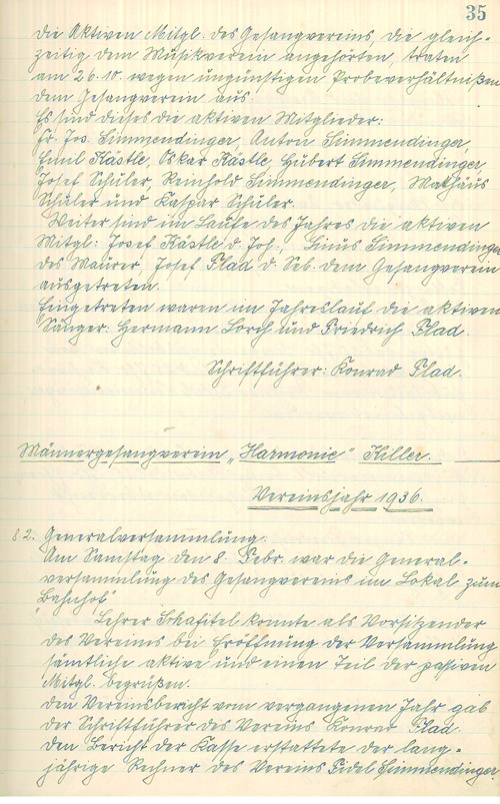 35
die Aktiven Mitgl. des Gesangvereins, die gleich-
zeitig dem Musikverein angehörten, traten
am 26.10. wegen ungünstigen Probeverhältnißen
dem Gesangverein aus.
Es sind dieses die aktiven Mitglieder:
Fr. Jos. Simmendinger, Anton Simmendinger,
Emil Kästle, Oskar Kästle, Hubert Simmendinger,
Josef Schuler, Reinhold Simmendinger, Mathäus
Schuler und Kaspar Schuler.
Weiter sind im Laufe des Jahres die aktiven
Mitgl: Josef Kästle d. Joh., Simmendinger
des Maurer, Josef Flad d. Seb. dem Gesangverein
ausgetreten.
Eingetreten waren im Jahreslauf die aktiven
Sänger: Hermann Lorch und Friedrich Flad.
Schriftführer: Konrad Flad.
Männergesangverein „Harmonie“ Killer.
Vereinsjahr 1936.
82. Generalversammlung.
Am Samstag den 8. Febr. war die General-
versammlung des Gesangvereins im Lokal zum
„Bahnhof“
Lehrer konnte als Vorsitzender
des Vereins bei Eröffnung der Versammlung
sämtliche aktive und einen Teil der passiven
Mitgl. begrüßen.
Den Vereinsbericht vom vergangenen Jahr gab
der Schriftführer des Vereins Konrad Flad.
Den Bericht der Kasse erstattete der lang-
jährige Rechner des Vereins Fidel Simmendinger.